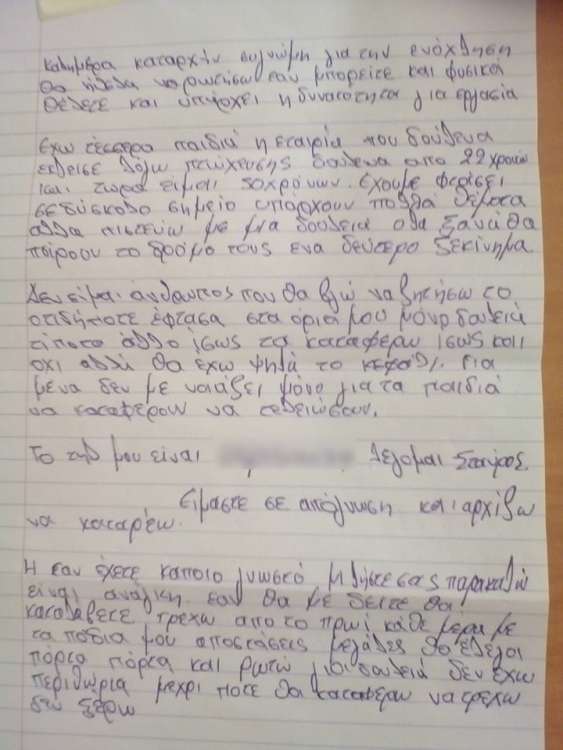 καλημερα καταρχήν συγνώμη για την ενόχληση
θα ήθελα να ρωτήσω εαν μπορειτε και φυσικά
θέλετε και υπάρχει η δυνατότητα για εργασία
Εχω τέσσερα παιδιά η εταιρία που δούλευα
εκλεισε λόγω πτώχευσης δουλευα απο 22 χρονών
και τωρα είμαι 50 χρόνων. Εχουμε φτάσει
σε δύσκολο σημείο υπάρχουν πολλά θέματα
αλλα πιστευω με μια δουλεια ολα ξανά θα
παίρουν το δρόμο τους ενα δεύτερο ξεκίνημα.
Δεν είμαι άνθρωπος που θα βγώ να ζητήσω το
οτιδήποτε έφτασα στα όρια μου μόνο δουλειά
τίποτα άλλο ίσως τα καταφέρω ίσως και
όχι αλλά θα έχω ψηλά το κεφάλι. Για
μένα δεν με νοιάζει μόνο για τα παιδιά
να καταφερουν να τελειώσουν.
Το τηλ μου είναι Λέγομαι Σταύρος.
Ειμαστε σε απόγνωση και αρχιζω
να καταρέω.
Η εαν έχετε καποιο γνωστό μιλήστε σας παρακαλώ
είναι ανάγκη εαν θα με δειτε θα
καταλάβετε τρεχω απο το πρωί κάθε μερα με
τα πόδια μου αποστάσεις μεγάλες
πόρτα πόρτα και ρωτώ για δουλειά δεν έχω
περιθώρια μεχρι ποτε θα καταφέρω να τρεχω
δεν ξέρω